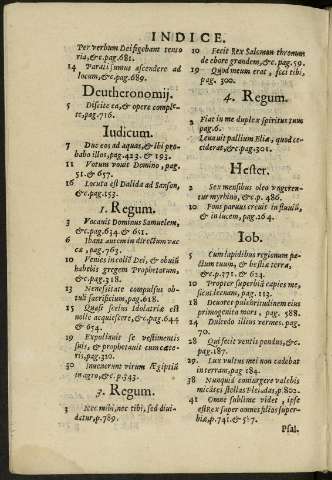 INDICE.
Per verbum Dei figebant tento
ria, &c. pag. 681.
14 Parati sumus ascendere ad
locum, &c. pag. 689.
Deutheronomij.
5 Discite ea, & opere comple-
te, pag. 716.
Iudicum.
7 Duc eos ad aquas, & ibi pro-
babo illos, pag. 423. & 193.
11 Votum vouit Domino, pag.
51. & 657.
16 Locuta est Dalida ad Sanson,
&c. pag. 153.
1. Regum.
3 Vocauit Dominus Samuelem,
&c. pag. 634 & 651.
6 Ibant autem in directum vac
cæ, pag. 763.
10 Venies in collē Dei, & obuiū
habebis gregem Prophetarum,
&c. pag. 318.
13 Necessitate compulsus ob-
tuli sacrificium, pag. 618.
15 Quasi scelus Idolatriæ est
nolle acquiescere, &c. pag. 644
& 654.
19 Expoliauit se vestimentis
suis, & prophetauit cum cæte-
ris, pag. 310.
30 Inuenerunt virum Ægiptiū
in agro, &c. p. 343.
3. Regum.
3 Nec mihi, nec tibi, sed diui-
datur, p. 789.
10 Fecit Rex Salomon thronum
de ebore grandem, &c. pag. 59.
19 Quod meum erat, feci tibi,
pag. 300.
4. Regum.
2 Fiat in me duplex spiritus tuus
pag. 6.
Leuauit pallium Eliæ, quod ce-
ciderat, &c. pag. 301.
Hester.
2 Sex mensibus oleo vngeren-
tur myrhino, &c. p. 486.
10 Fons paruus creuit in fluuiū,
& in lucem, pag. 164.
Iob.
5 Cum lapidibus regionum pa-
ctum tuum, & bestiæ terræ,
&c. p. 171. & 624.
10 Propter superbiā capies me,
sicut leænam, pag. 113.
18 Deuoret pulchritudinem eius
primogenita mors, pag. 588.
24 Dulcedo illius vermes. pag.
70.
28 Qui fecit ventis pondus, &c.
pag. 187.
29 Lux vultus mei non cadebat
in terram, pag 184.
38 Nunquid coniungere valebis
micātes stellas Pleiadas, p. 802.
41 Omne sublime videt, ipse
est Rex super omnes filios super-
biæ, p. 741. & 587.
Psal.